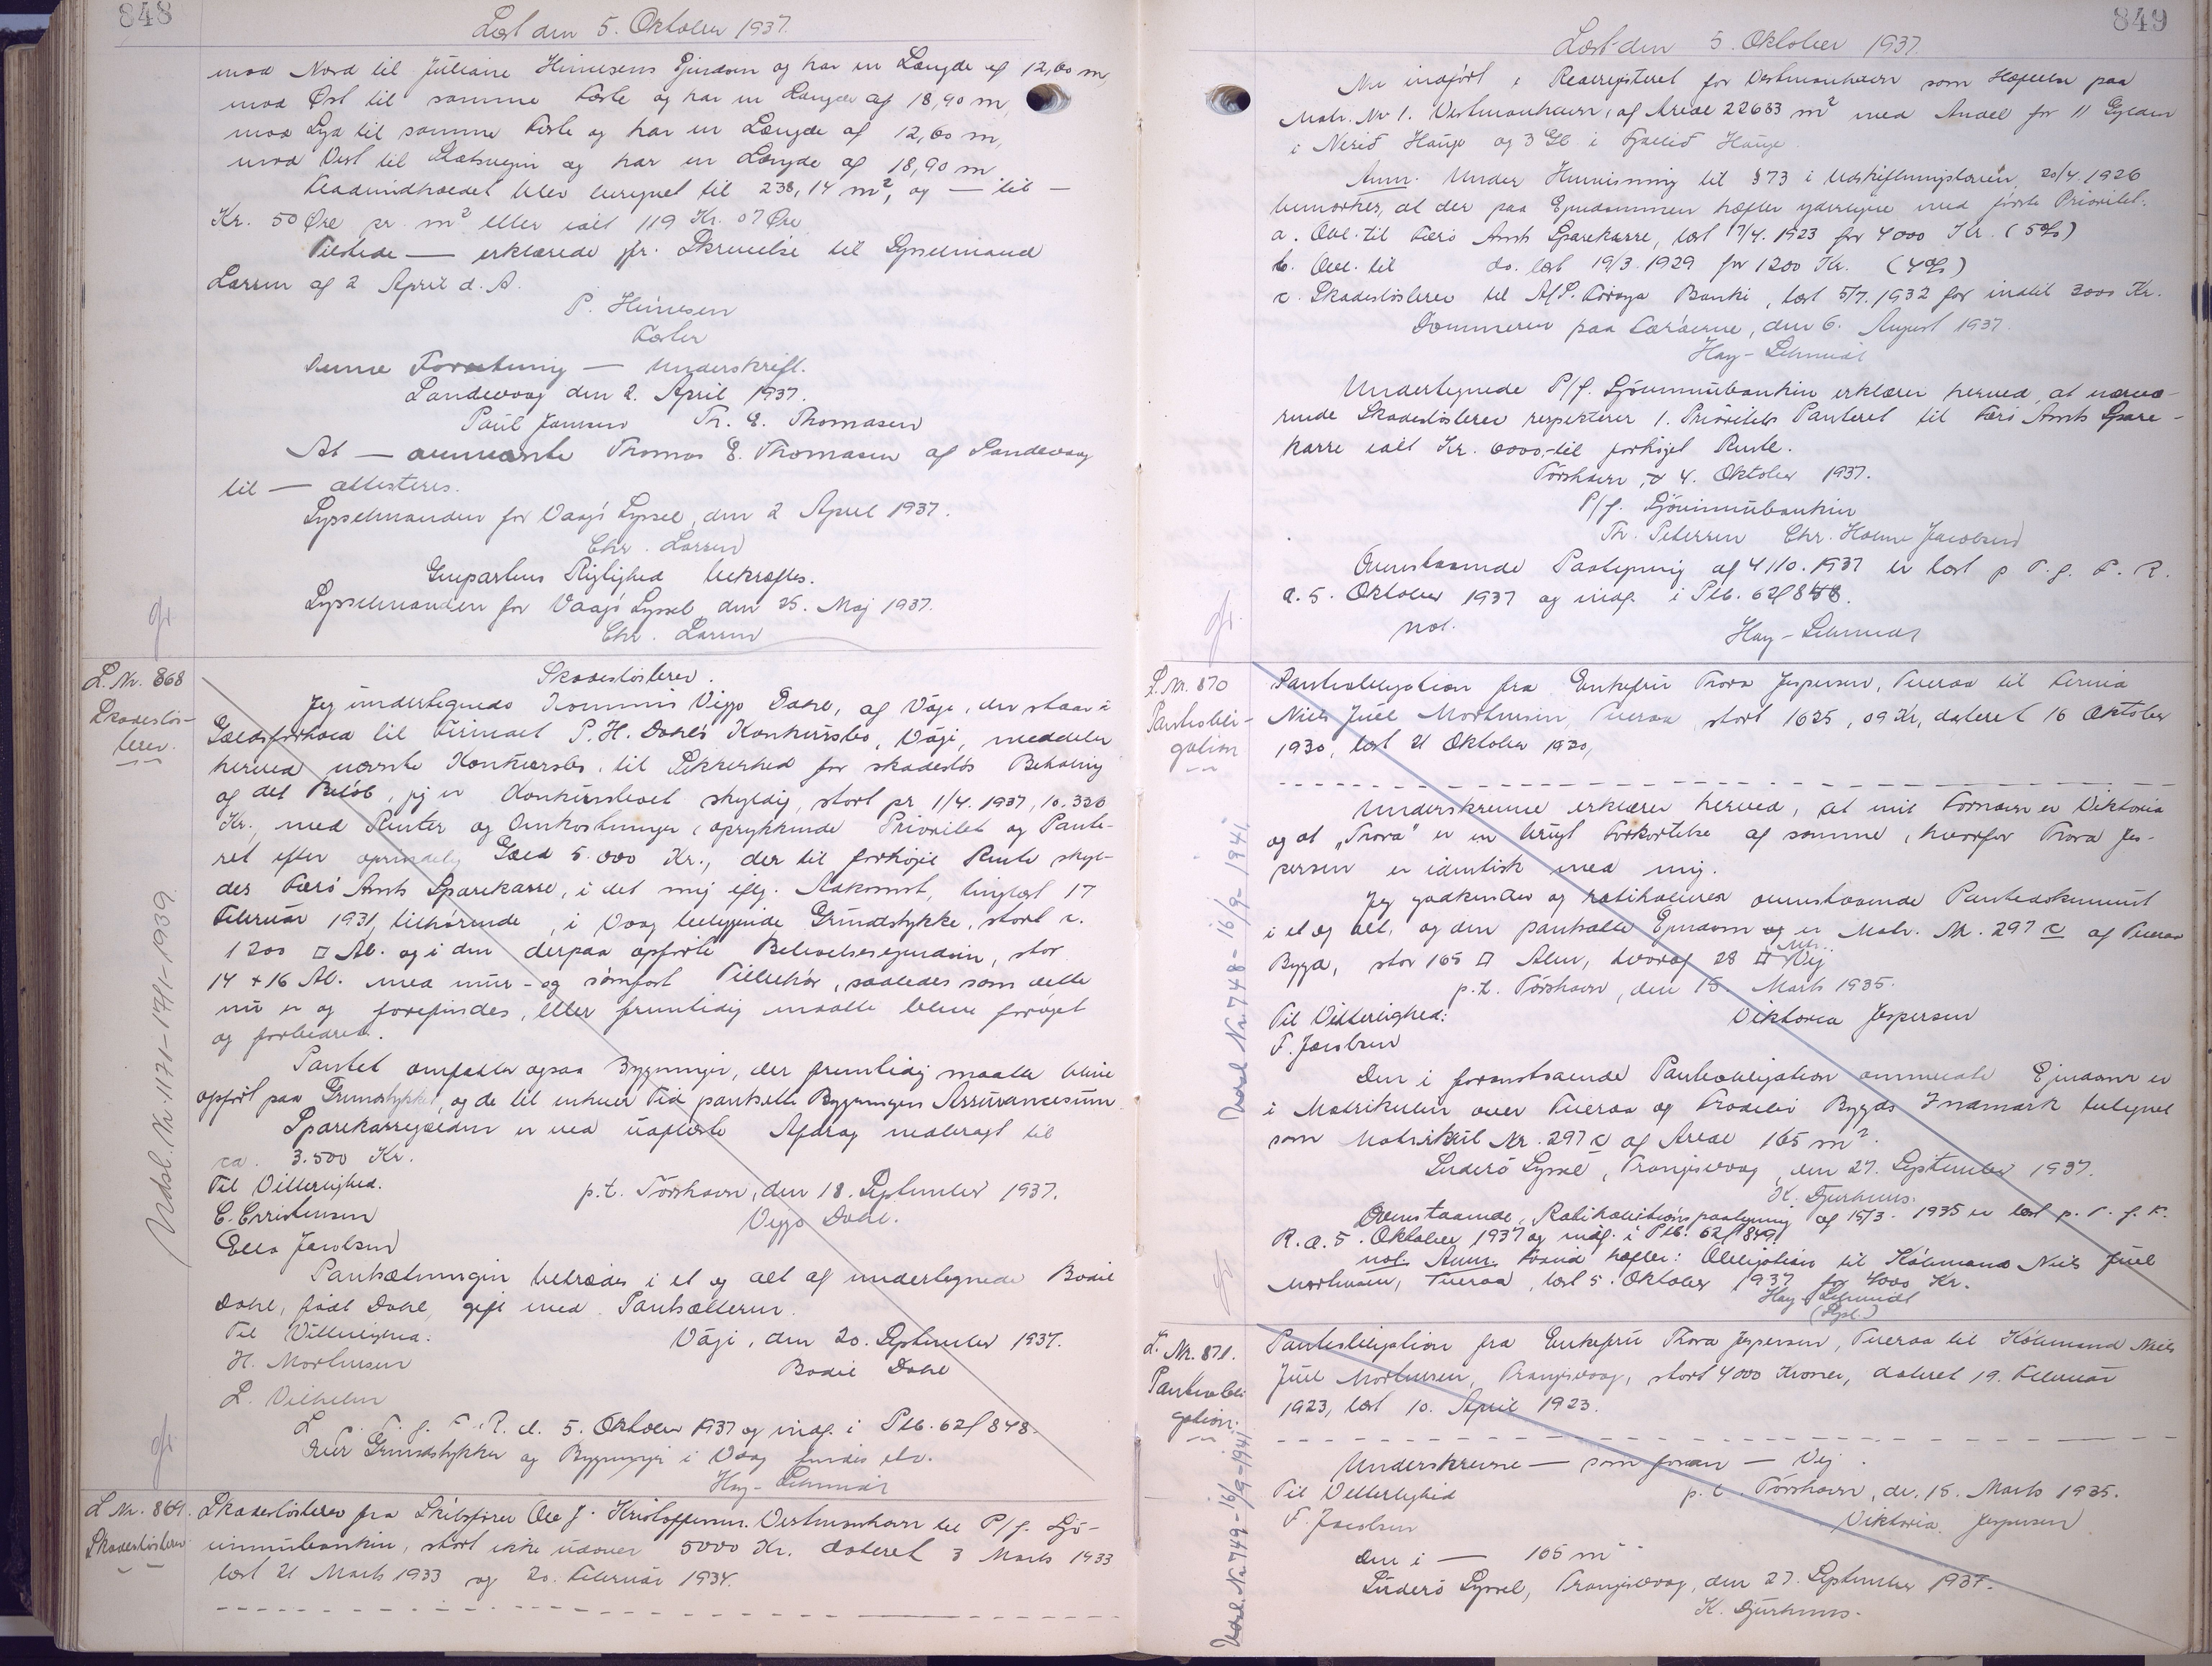 848
Læst den 5. Oktober 1937.
mod Nord til Juliane Heinesens Ejendom og har en Længde af 12,60 m,
mod Øst til samme Fæste og har en Længde af 18,90 m,
mod Syd til samme Fæste og har en Længde af 12,60 m,
mod Vest til Fæstevejen og har en Længde af 18,90 m
Fladeindholdet blev beregnet til 238,14 m², og — til —
Kr. 50 Øre pr. m² eller ialt 119 Kr. 07 Øre
Tilstede — erklærede jfr. Skrivelse til Sysselmand
Larsen af 2 April d. A.
P. Heinesen
Fæster
Denne Forretning — Underskrift.
Sandevaag den 2. April 1937.
Paul Jansen Th. E. Thomasen
At — ommeldte Thomas E. Thomasen af Sandevaag
til — attesteres.
Sysselmanden for Vaagø Syssel, den 2 April 1937.
Chr. Larsen
Genpartens Rigtighed bekræftes.
Sysselmanden for Vaagø Syssel, den 25. Maj 1937.
Chr. Larsen
L. Nr. 868
Skadesløs-
brev.
Udsl. Nr. 1171-17/1-1939.
Skadesløsbrev.
Jeg undertegnede Kommis Viggo Dahl, af Vági, der staar i
Gældsforhold til Firmaet P. H. Dahl's Konkursbo, Vági, meddeler
herved nævnte Konkursbo, til Sikkerhed for skadesløs Betaling
af det Beløb, jeg er Konkursboet skyldig, stort pr. 1/4. 1937, 10.320
Kr., med Renter og Omkostninger, oprykkende Prioritet og Pante-
ret efter oprindelig Gæld 5.000 Kr., der til forhøjet Rente skyl-
des Færø Amts Sparekasse, i det mig iflg. Adkomst, tinglæst 17
Februar 1931, tilhørende, i Vaag beliggende Grundstykke, stort c.
1200 □ Al. og i den derpaa opførte Beboelsesejendom, stor
14 × 16 Al. med mur- og sømfast Tilbehør, saaledes som dette
nu er og forefindes, eller fremtidig maatte blive forøget
og forbedret.
Pantet omfatter ogsaa Bygninger, der fremtidig maatte blive
opført paa Grundstykket, og de til enhver Tid pantsatte Bygningers Assurancesum.
Sparekassegælden er ved uopløste Afdrag nedbragt til
ca. 3.500 Kr.
Til Vitterlighed.
p.t. Torshavn, den 18. September 1937.
C. Christensen
Viggo Dahl.
Ella Jacobsen
Pantsætningen tiltrædes i et og alt af undertegnede Bodil
Dahl, født Dahl, gift med Pantsætteren.
Til Vitterlighed:
Vági, den 20. September 1937.
H. Mortensen
Bodil Dahl
L. Vilhelm
L. p. T. f. F. R. d. 5. Oktober 1937 og indf. i Ptb. 62 f 848.
Flere Grundstykker og Bygninger i Vaag findes etc.
Hay-Schmidt
L. Nr. 869.
Skadesløsbrev
Skadesløsbrev fra Skibsfører Ole J. Kristoffersen, Vestmanhavn til P/f. Sjó-
vinnubankin, stort ikke udover 5000 Kr. dateret 3 Marts 1933
læst 21 Marts 1933 og 20. Februar 1934.
849
Læst den 5. Oktober 1937.
Nu indført i Realregisteret for Vestmanhavn som Hæftelse paa
Matr. Nr. 1. Vestmanhavn, af Areal 22683 m² med Andel for 11 Gylden
i Nerið Hauge og 3 Gl. i Fjallið Hauge.
Anm. Under Henvisning til §73 i Udskiftningsloven 20/4. 1926
bemærkes, at der paa Ejendommen hæfter yderligere med første Prioritet:
a. Obl. til Færø Amts Sparekasse, læst 17/4. 1923 for 4000 Kr. (5%)
b. Obl. til do. læst 19/3. 1929 for 1200 Kr. (4%)
c. Skadesløsbrev til A/S. Føroya Banki, læst 5/7. 1932 for indtil 3000 Kr.
Dommeren paa Færøerne, den 6. August 1937.
Hay-Schmidt
Undertegnede P/f. Sjóvinnubankin erklærer herved, at nærvæ-
rende Skadesløsbrev respekterer 1. Prioritets Panteret til Færø Amts Spare-
kasse ialt Kr. 6000,- til forhøjet Rente.
Tórshavn, d. 4. Oktober 1937.
P/f. Sjóvinnubankin
Th. Petersen Chr. Holm Jacobsen
Ovenstaaende Paategning af 4/10. 1937 er læst p. T. f. F. R.
d. 5. Oktober 1937 og indf. i Ptb. 62 f 848.
not.
Hay-Schmidt
L. Nr. 870
Pantobli-
gation
Udsl. Nr. 748-16/9-1941
Pantobligation fra Enkefru Thora Jespersen, Tveraa til Firma
Niels Juel Mortensen, Tveraa, stort 1625,09 Kr., dateret 16 Oktober
1930, læst 21 Oktober 1930,
Underskrevne erklærer herved, at mit Fornavn er Viktoria
og at „Thora" er en brugt Forkortelse af samme, hvorfor Thora Jes-
persen er identisk med mig.
Jeg godkender og ratihaberer ovenstaaende Pantedokument
i et og alt, og den pantsatte Ejendom og er Matr. Nr. 297 c af Tveraa
Bygd, stor 165 □ Alen, hvoraf 28 □ Mtr. Vej
p.t. Tórshavn, den 15. Marts 1935.
Til Vitterlighed:
Viktoria Jespersen
F. Jacobsen
Den i foranstaaende Pantobligation ommeldte Ejendom er
i Matrikulen over Tveraa og Frodebø Bygds Indmark betegnet
som Matrikul Nr. 297 c af Areal 165 m².
Suderø Syssel, Trangisvaag, den 27. September 1937.
K. Djurhuus.
Ovenstaaende Ratihabitionspaategning af 15/3. 1935 er læst p. T. f. F.
R. d. 5. Oktober 1937 og indf. i Ptb. 62 f 849.
not. Anm. Forud hæfter: Obligation til Købmand Niels Juel
Mortensen, Tveraa, læst 5. Oktober 1937 for 4000 Kr.
Hay-Schmidt
L. Nr. 871.
Pantobli-
gation.
Udsl. Nr. 749-16/9-1941
Pantobligation fra Enkefru Thora Jespersen, Tveraa til Købmand Niels
Juel Mortensen, Trangisvaag, stort 4000 Kroner, dateret 19. Februar
1923, læst 10. April 1923.
Underskrevne — som foran — Vej.
Til Vitterlighed
p.t. Tórshavn, d. 15. Marts 1935.
F. Jacobsen
Viktoria Jespersen
Den i — 165 m².
Suderø Syssel, Trangisvaag, den 27. September 1937.
K. Djurhuus.